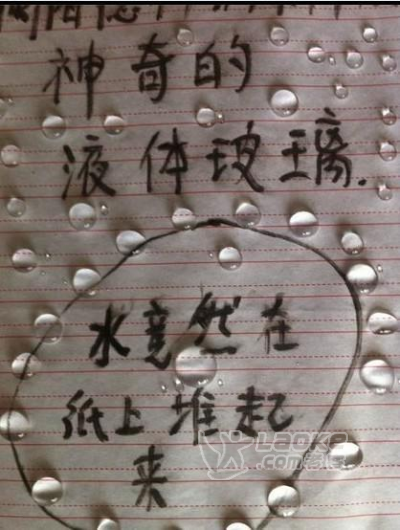 神奇的
液体玻璃.
水竟然在
纸上堆起
来
Laoke
.com